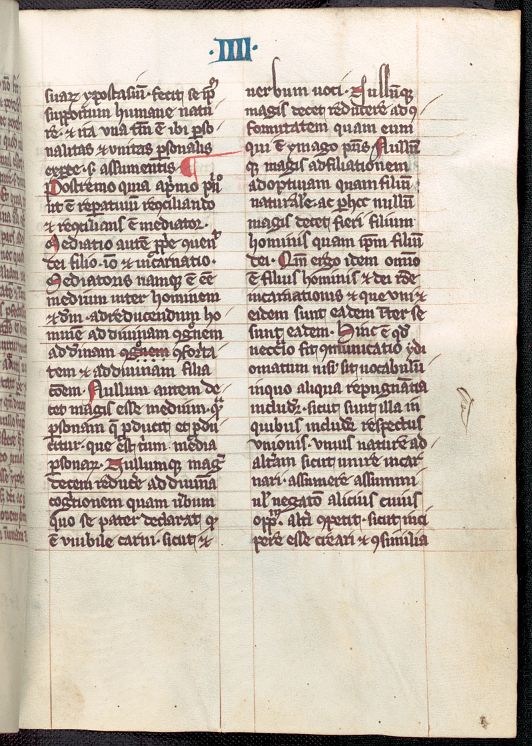 ·IIII·
suaꝝ ypostasiū· fecit se ip̄
suppoitum humane natu
re· ⁊ ita vna tm̄ ē ibi p̱so
nalitas ⁊ vnitas p̱sonalis
s· assumentis
Postremo quia
ē reparatiuū reꝯciliando
⁊ reꝯcilians ē mediator·
Mediatio autē
dei filio· iō ⁊ incarnatio·
Mediatoris namque ē eē
medium inter hominem
⁊ dm̄· ad reducendum ho
minē ad diuinam
ad diuinam
tem ⁊ ad diuinam filia
tōem· Nullum autem de
cet magis esse medium· qͣ
p̱sonam q̄ p̱ducit et p̱du
citur· que est media
p̱sonaꝝ· Nullumque mag̉
decem reduc̉e ad diuina
cogͥtionem quam ūbum
quo se pater declarat q
ē vnibile carni· sicut ⁊
uerbum uoci· Nullūque
magis decet reducere ad ꝯ
formitatem quam eum
qui ē ymago pr̄is· Nullum
que magis ad filiationem
adoptiuam quam filiū
naturale· ac nullū
magis decet fieri filium
hominis quam ip̄m filiū
dei· Qm̄ ergo idem omīo
ē filius hominis ⁊ dei
incarnationis ⁊ que vni ⁊
eidem sunt eadem se
sunt eadem· Hinc ē qd̄
necc̄io fit ꝯmunicatio ydi
omatum nisi sit uocabulū
in quo aliqua repugnātia
includr̉· sicut sunt illa in
quibus includr̉ respectus
vnionis· vnius nature ad
alt̉am sicut unire incar
nari· assumere assummi
ul̓ negatō alicuius cuius
alt̉i ꝯpetit· sicut inci
pere esse creari ⁊ ꝯsimilia